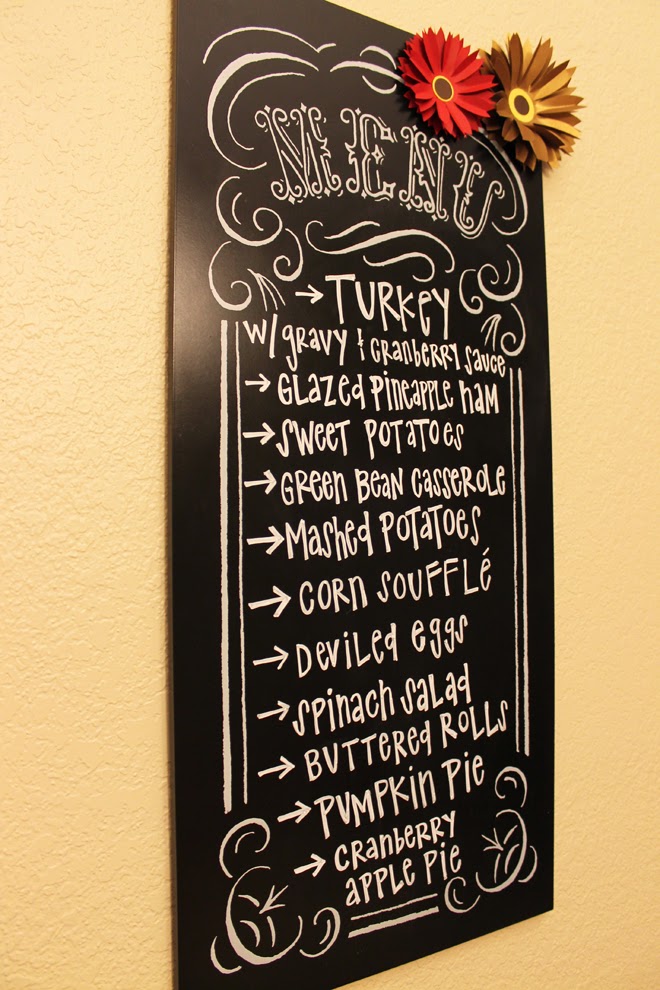 MENU
→ TURKEY
w/ gravy & cranberry sauce
→ Glazed Pineapple Ham
→ Sweet Potatoes
→ Green Bean Casserole
→ Mashed Potatoes
→ Corn Soufflé
→ Deviled eggs
→ Spinach Salad
→ Buttered Rolls
→ Pumpkin Pie
→ Cranberry
apple Pie